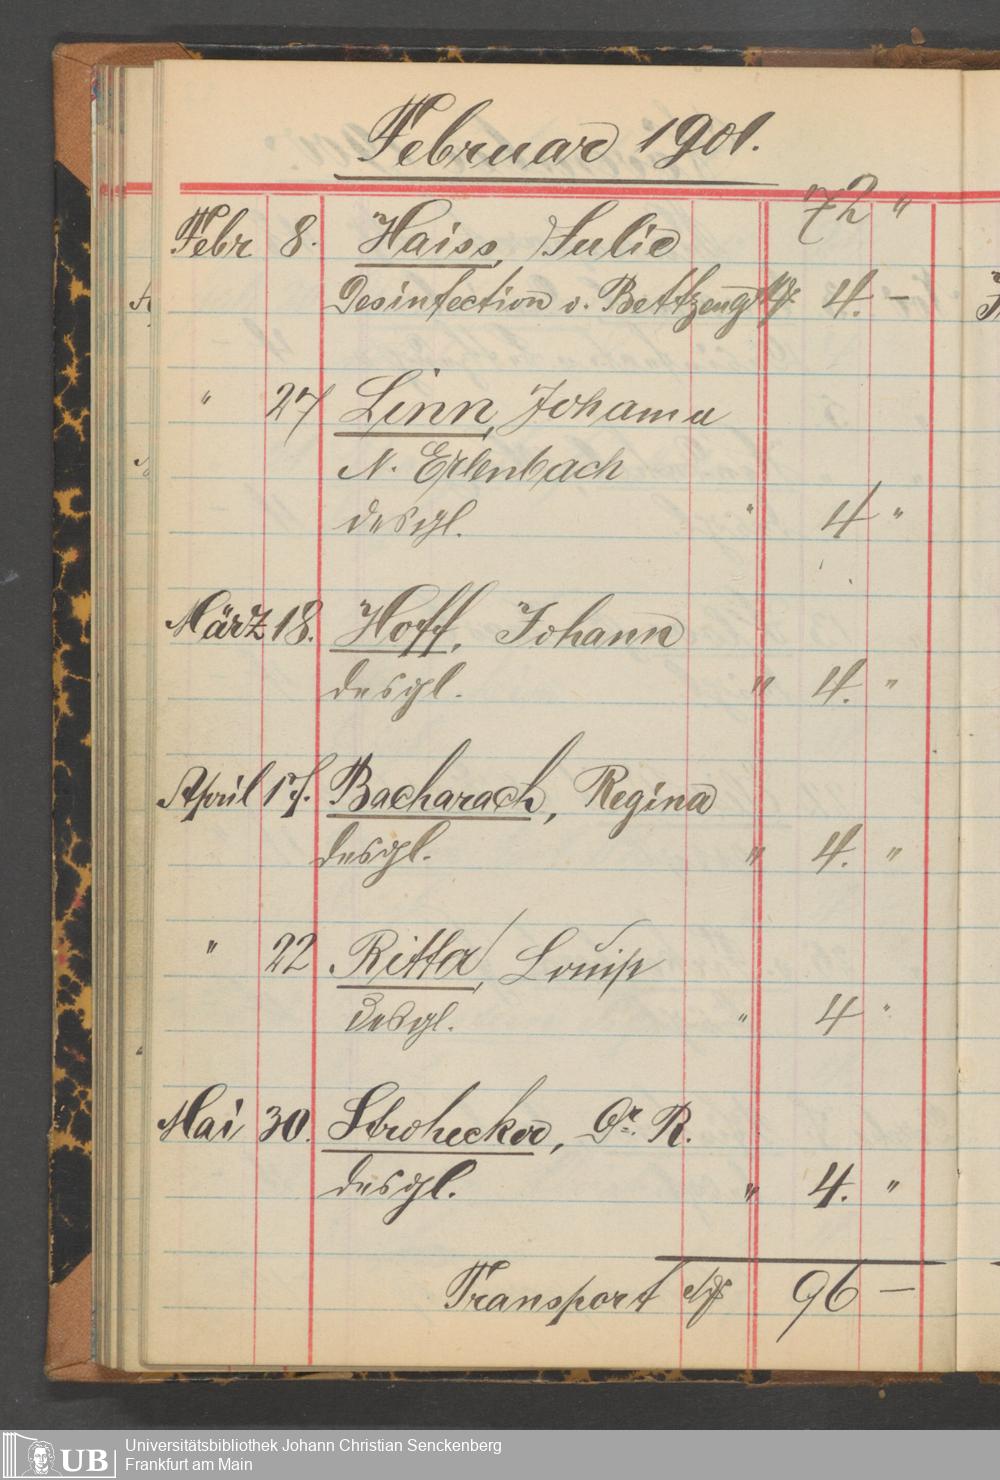 Februar 1901.
72 "
Febr 8. Haiss, Julie
Desinfection v. Bettzeug M 4. –
" 27 Linn, Johanna
N. Erlenbach
desgl. " 4 "
März 18. Hoff, Johann
desgl. " 4. "
April 17. Bacharach, Regina
desgl. " 4. "
" 22 Ritta, Louise
desgl. " 4 "
Mai 30. Strohecker, Dr. R.
desgl. " 4. "
Transport M 96 –
UB
Universitätsbibliothek Johann Christian Senckenberg
Frankfurt am Main